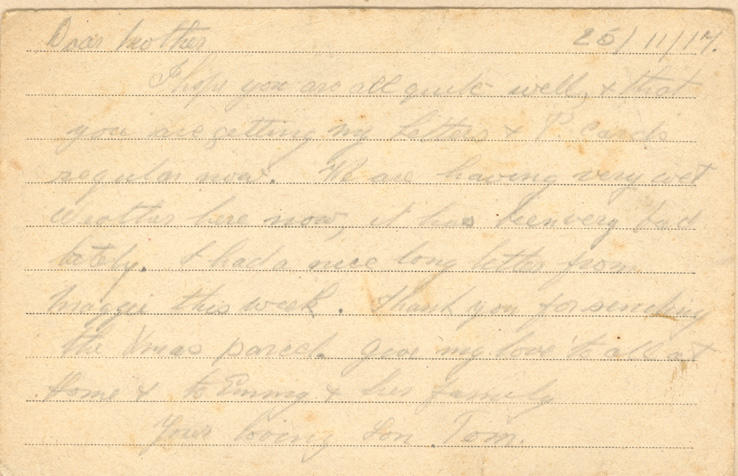 Dear Mother 25/11/17.
I hope you are all quite well, & that
you are getting my letters & P. cards
regular now. We are having very wet
weather here now, it has been very bad
lately. I had a nice long letter from
Maggie this week. Thank you for sending
the Xmas parcel. Give my love to all at
Home & to & her family
Your loving Son Tom.